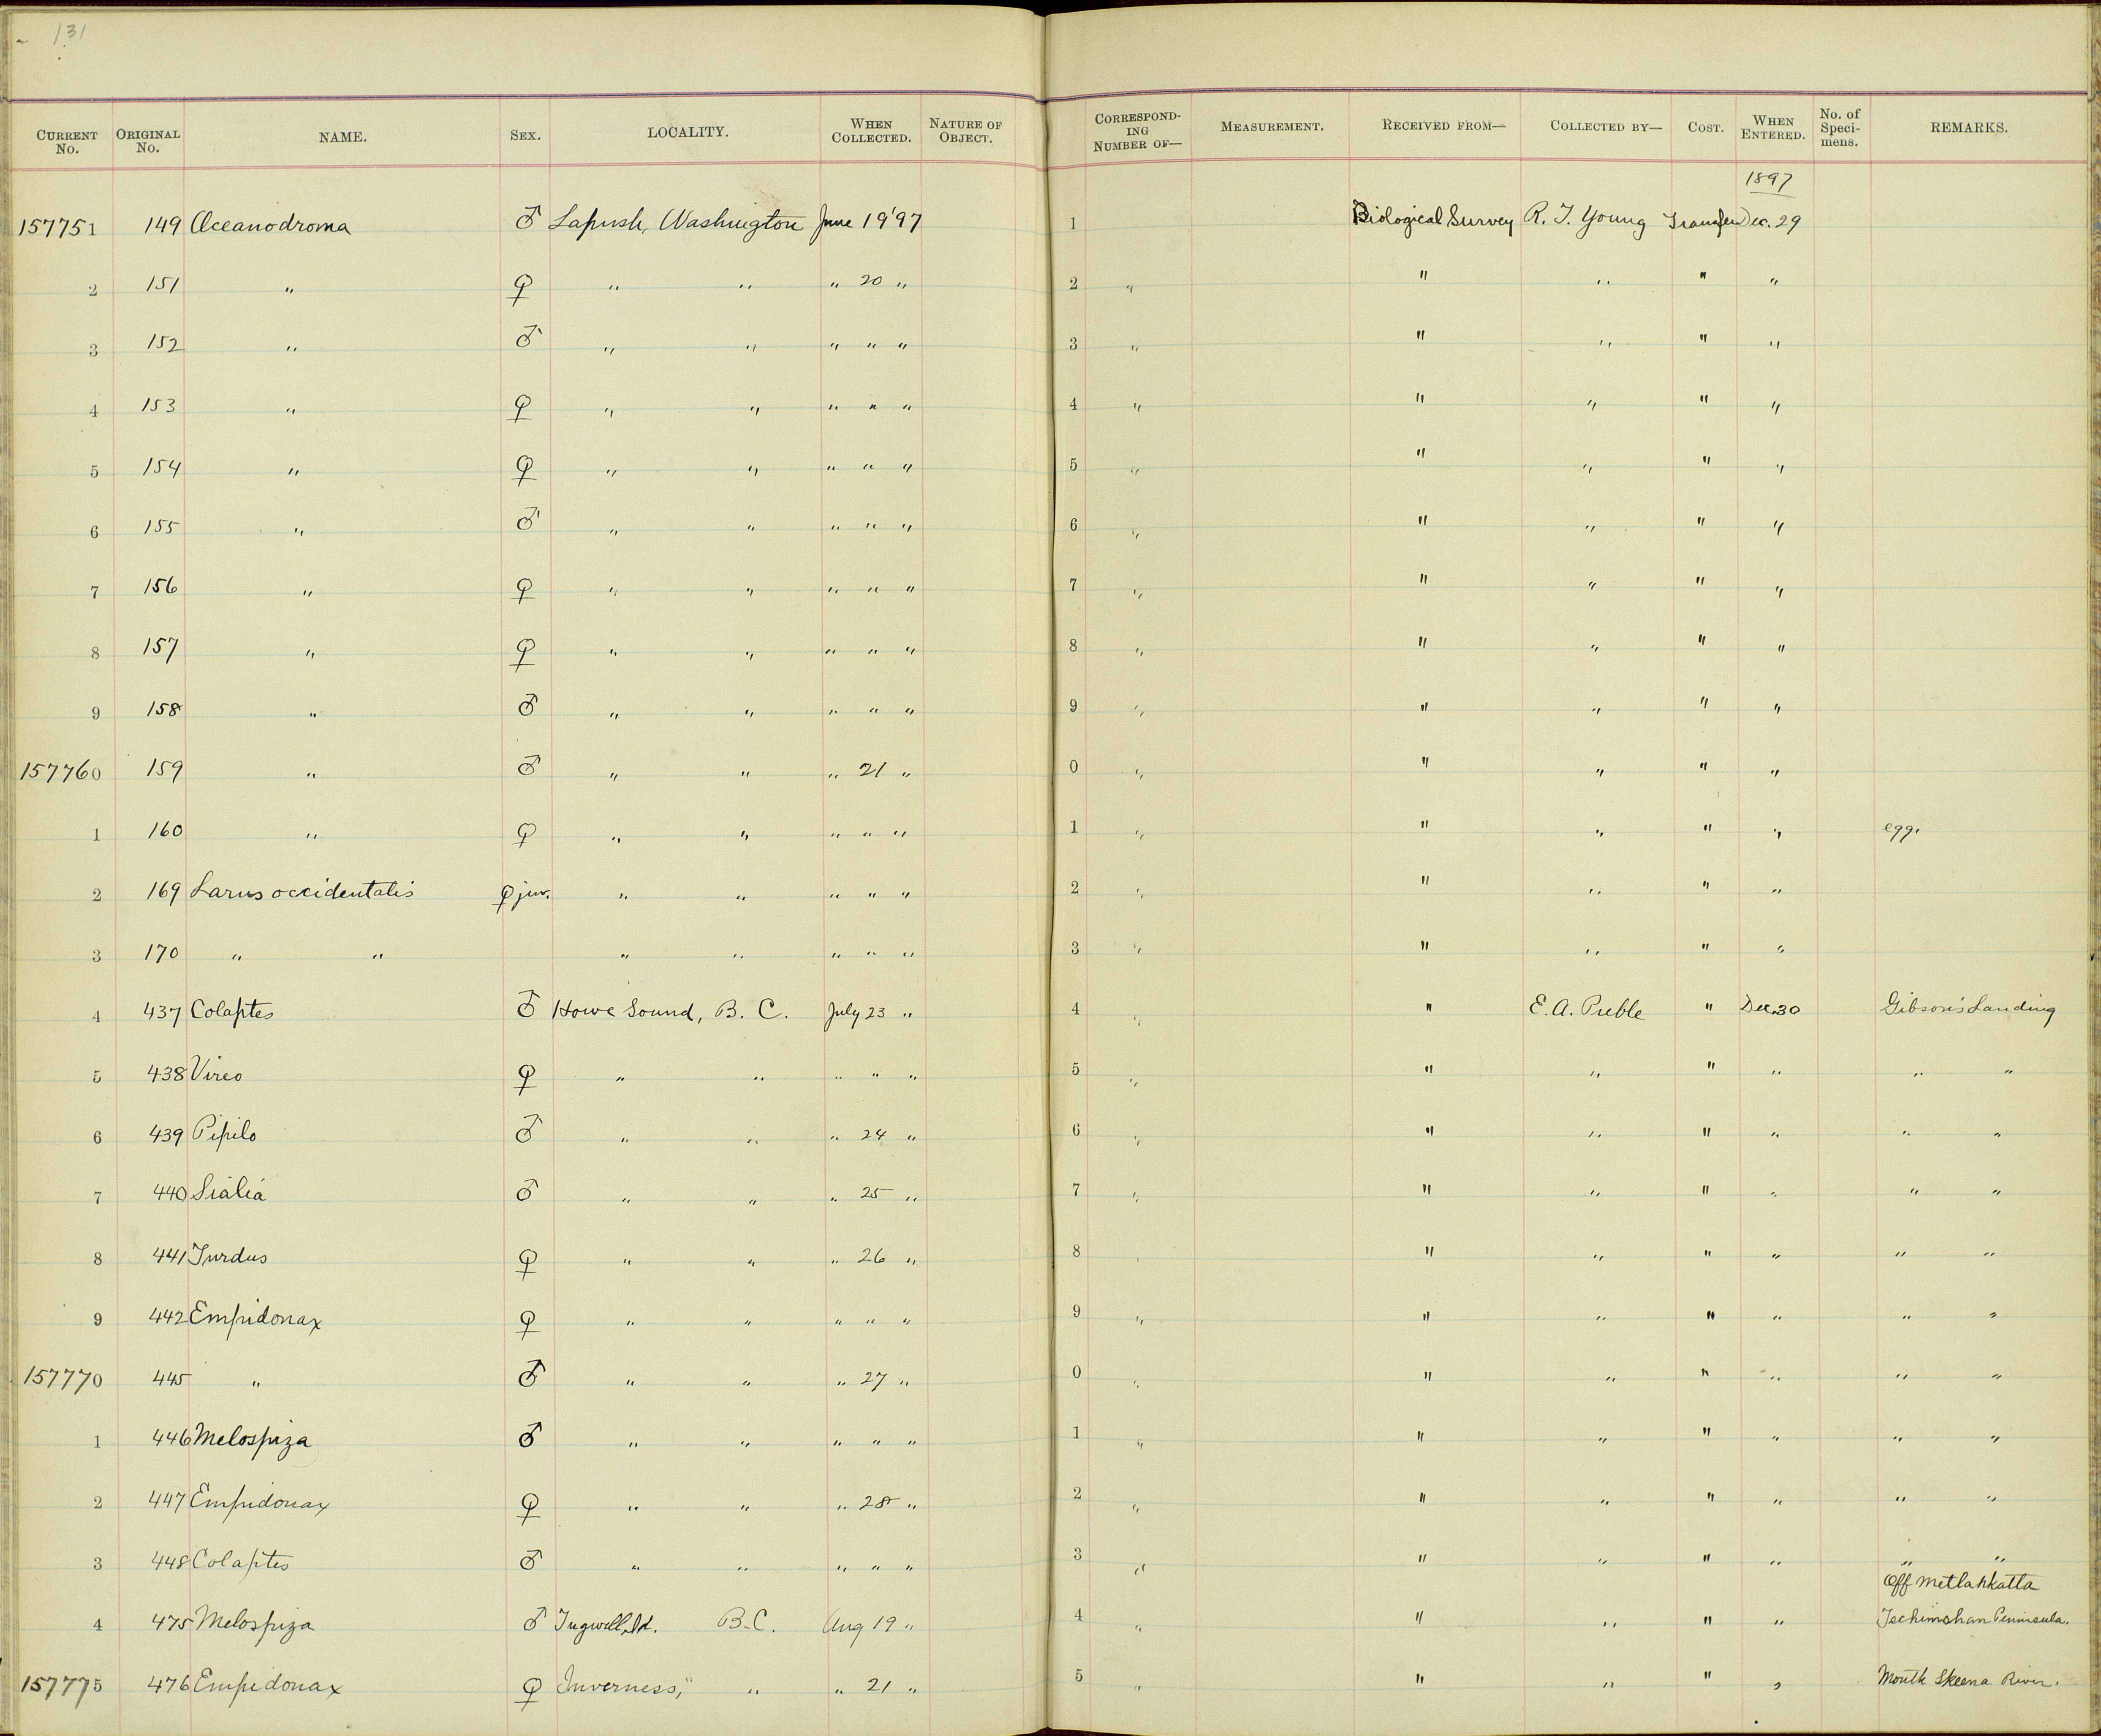 131
CURRENT No. ORIGINAL No. NAME. SEX. LOCALITY. WHEN COLLECTED. NATURE OF OBJECT. CORRESPONDING NUMBER OF— MEASUREMENT. RECEIVED FROM— COLLECTED BY— COST. WHEN ENTERED. No. of Specimens. REMARKS.
1897
157751 149 Oceanodroma ♂ Lapush, Washington June 19 '97 1 Biological Survey R. T. Young Transfer Dec. 29
2 151 " ♀ " " " 20 " 2 " " " " "
3 152 " ♂ " " " " " 3 " " " " "
4 153 " ♀ " " " " " 4 " " " " "
5 154 " ♀ " " " " " 5 " " " " "
6 155 " ♂ " " " " " 6 " " " " "
7 156 " ♀ " " " " " 7 " " " " "
8 157 " ♀ " " " " " 8 " " " " "
9 158 " ♂ " " " " " 9 " " " " "
157760 159 " ♂ " " " 21 " 0 " " " " "
1 160 " ♀ " " " " " 1 " " " " " egg.
2 169 Larus occidentalis ♀ juv. " " " " " 2 " " " " "
3 170 " " " " " " " 3 " " " " "
4 437 Colaptes ♂ Howe Sound, B. C. July 23 " 4 " " E. A. Preble " Dec. 30 Gibson's Landing
5 438 Vireo ♀ " " " " " 5 " " " " " " "
6 439 Pipilo ♂ " " " 24 " 6 " " " " " " "
7 440 Sialia ♂ " " " 25 " 7 " " " " " " "
8 441 Turdus ♀ " " " 26 " 8 " " " " " "
9 442 Empidonax ♀ " " " " " 9 " " " " " " "
157770 445 " ♂ " " " 27 " 0 " " " " " " "
1 446 Melospiza ♂ " " " " " 1 " " " " " " "
2 447 Empidonax ♀ " " " 28 " 2 " " " " " " "
3 448 Colaptes ♂ " " " " " 3 " " " " " " "
Off Metlahkatla
4 475 Melospiza ♂ Tugwell Id. B.C. Aug 19 " 4 " " " " " Tschimshan Peninsula.
157775 476 Empidonax ♀ Inverness, " " " 21 " 5 " " " " " Mouth Skeena River.